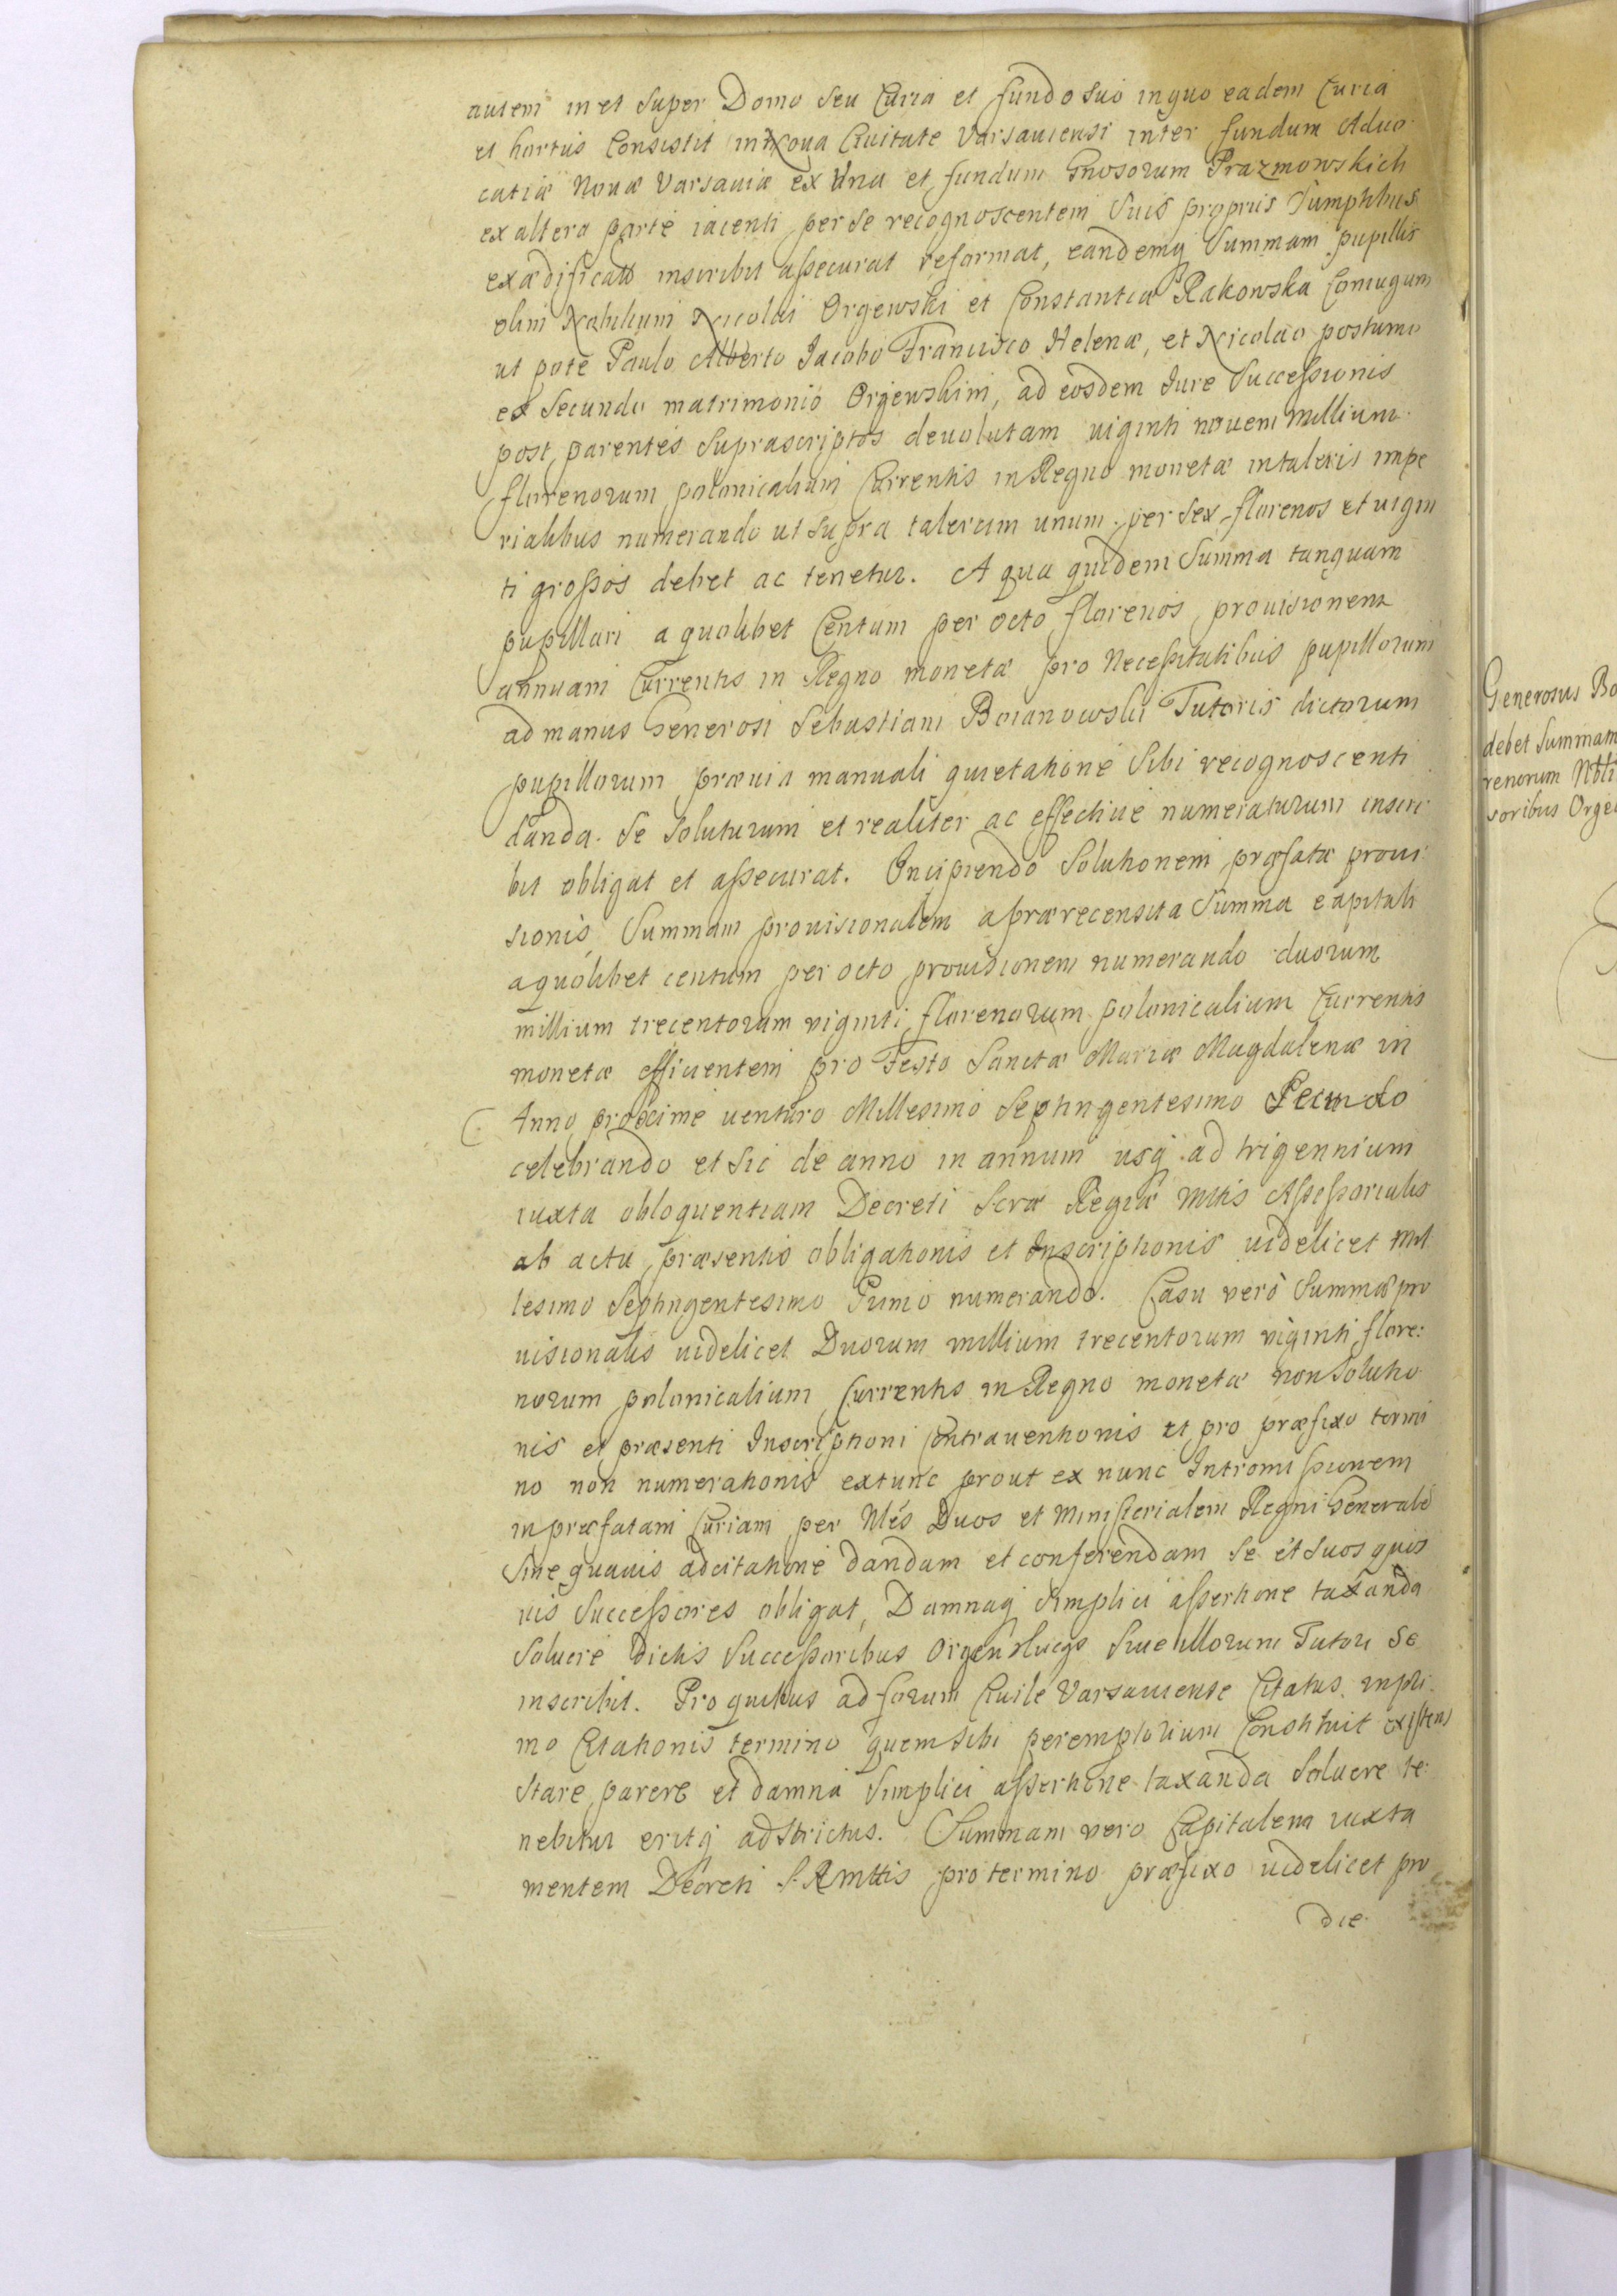 autem in et super Domo seu Curia et fundo suo in quo eadem Curia
et hortus Consistit in Noua Ciuitate Varsauiensi inter fundum Aduo
catiæ Nouæ Varsauiæ ex una et fundum Gnosorum Prazmowskich
ex altera parte iacenti per se recognoscentem suis proprijs sumptibus
exædificata inscribit assecurat reformat, eandemq summam pupillis
olim Nobilium Nicolai Orgewski et Constantiæ Rakowska Coniugum
ut pote Paulo Alberto Iacobo Francisco Helenæ, et Nicolao postumo
ex secundo matrimonio Orgewskim, ad eosdem Iure Successionis
post parentes suprascriptos deuolutam uiginti nouem millium
florenorum polonicalium Currentis in Regno monetæ in taleris impe
rialibus numerando ut supra talerum unum per sex florenos et uigin
ti grossos debet ac tenetur. A qua quidem Summa tanquam
pupillari a quolibet Centum per octo florenos prouisionem
annuam Currentis in Regno monetæ pro Necessitatibus pupillorum
ad manus Generosi Sebastiani Boianowski Tutoris dictorum
pupillorum præuia manuali quietatione sibi recognoscenti
danda. Se soluturum et realiter ac effectiue numeraturum inscri
bit obligat et assecurat. Incipiendo Solutionem præfatæ proui
sionis Summam prouisionalem a prærecensita Summa capitali
a quolibet centum per octo prouisionem numerando duorum
millium trecentorum viginti florenorum polonicalium Currentis
monetæ efficientem pro Festo Sanctæ Mariæ Magdalenæ in
Anno proxime uenturo Millesimo Septingentesimo Secundo
celebrando et sic de anno in annum usq ad trigennium
iuxta obloquentiam Decreti Scræ Regiæ Mttis Assessorialis
ab actu præsentis obligationis et Inscriptionis uidelicet Mil
lesimo Septingentesimo Primo numerando. Casu vero Summæ pro
uisionalis uidelicet Duorum millium trecentorum viginti flore:
norum polonicalium Currentis in Regno monetæ non Solutio
nis et præsenti Inscriptioni Contrauentionis et pro præfixo termi
no non numerationis extunc prout ex nunc Intromissionem
in præfatam Curiam per Nles Duos et Ministerialem Regni Generale
sine quauis adcitatione dandam et conferendam se et suos quos
uis Successores obligat, Damnaq simplici assertione taxanda
Soluere dictis Successoribus siue illorum Tutori Se
inscribit. Pro quibus ad forum Ciuile Varsauiense Citatus in pri
mo Citationis termino quem sibi peremptorium Constituit existens
stare parere et damna simplici assertione taxanda soluere te
nebitur eritq adstrictus. Summam vero Capitalem iuxta
mentem Decreti S R Mttis pro termino præfixo uidelicet pro
die
Generosus Bo
debet Summam
renorum Nbli
soribus Orge